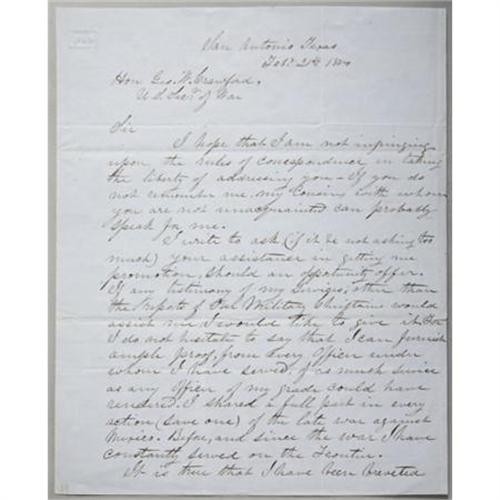 San Antonio Texas
Feby. 21st 1850
Hon Geo. W. Crawford.
U.S. Secy. of War
Sir
I hope that I am not infringing
upon the rules of correspondence in taking
the liberty of addressing you - If you do
not remember me, my cousins with whom
you are not unacquainted can probably
speak for me.
I write to ask (if it be not asking too
much) your assistance in getting me
promotion, should an oportunity offer.
If any testimony of my services, other than
the reports of our Military Chieftains would
assist me I would like to give it. For
I do not hesitate to say that I can furnish
ample proof, from every officer under
whom I have served, of as much service
as any officer of my grade could have
rendered. I shared a full part in every
action (save one) of the late war against
Mexico. Before, and since the war I have
constantly served on the Frontier.
It is true that I have been breveted